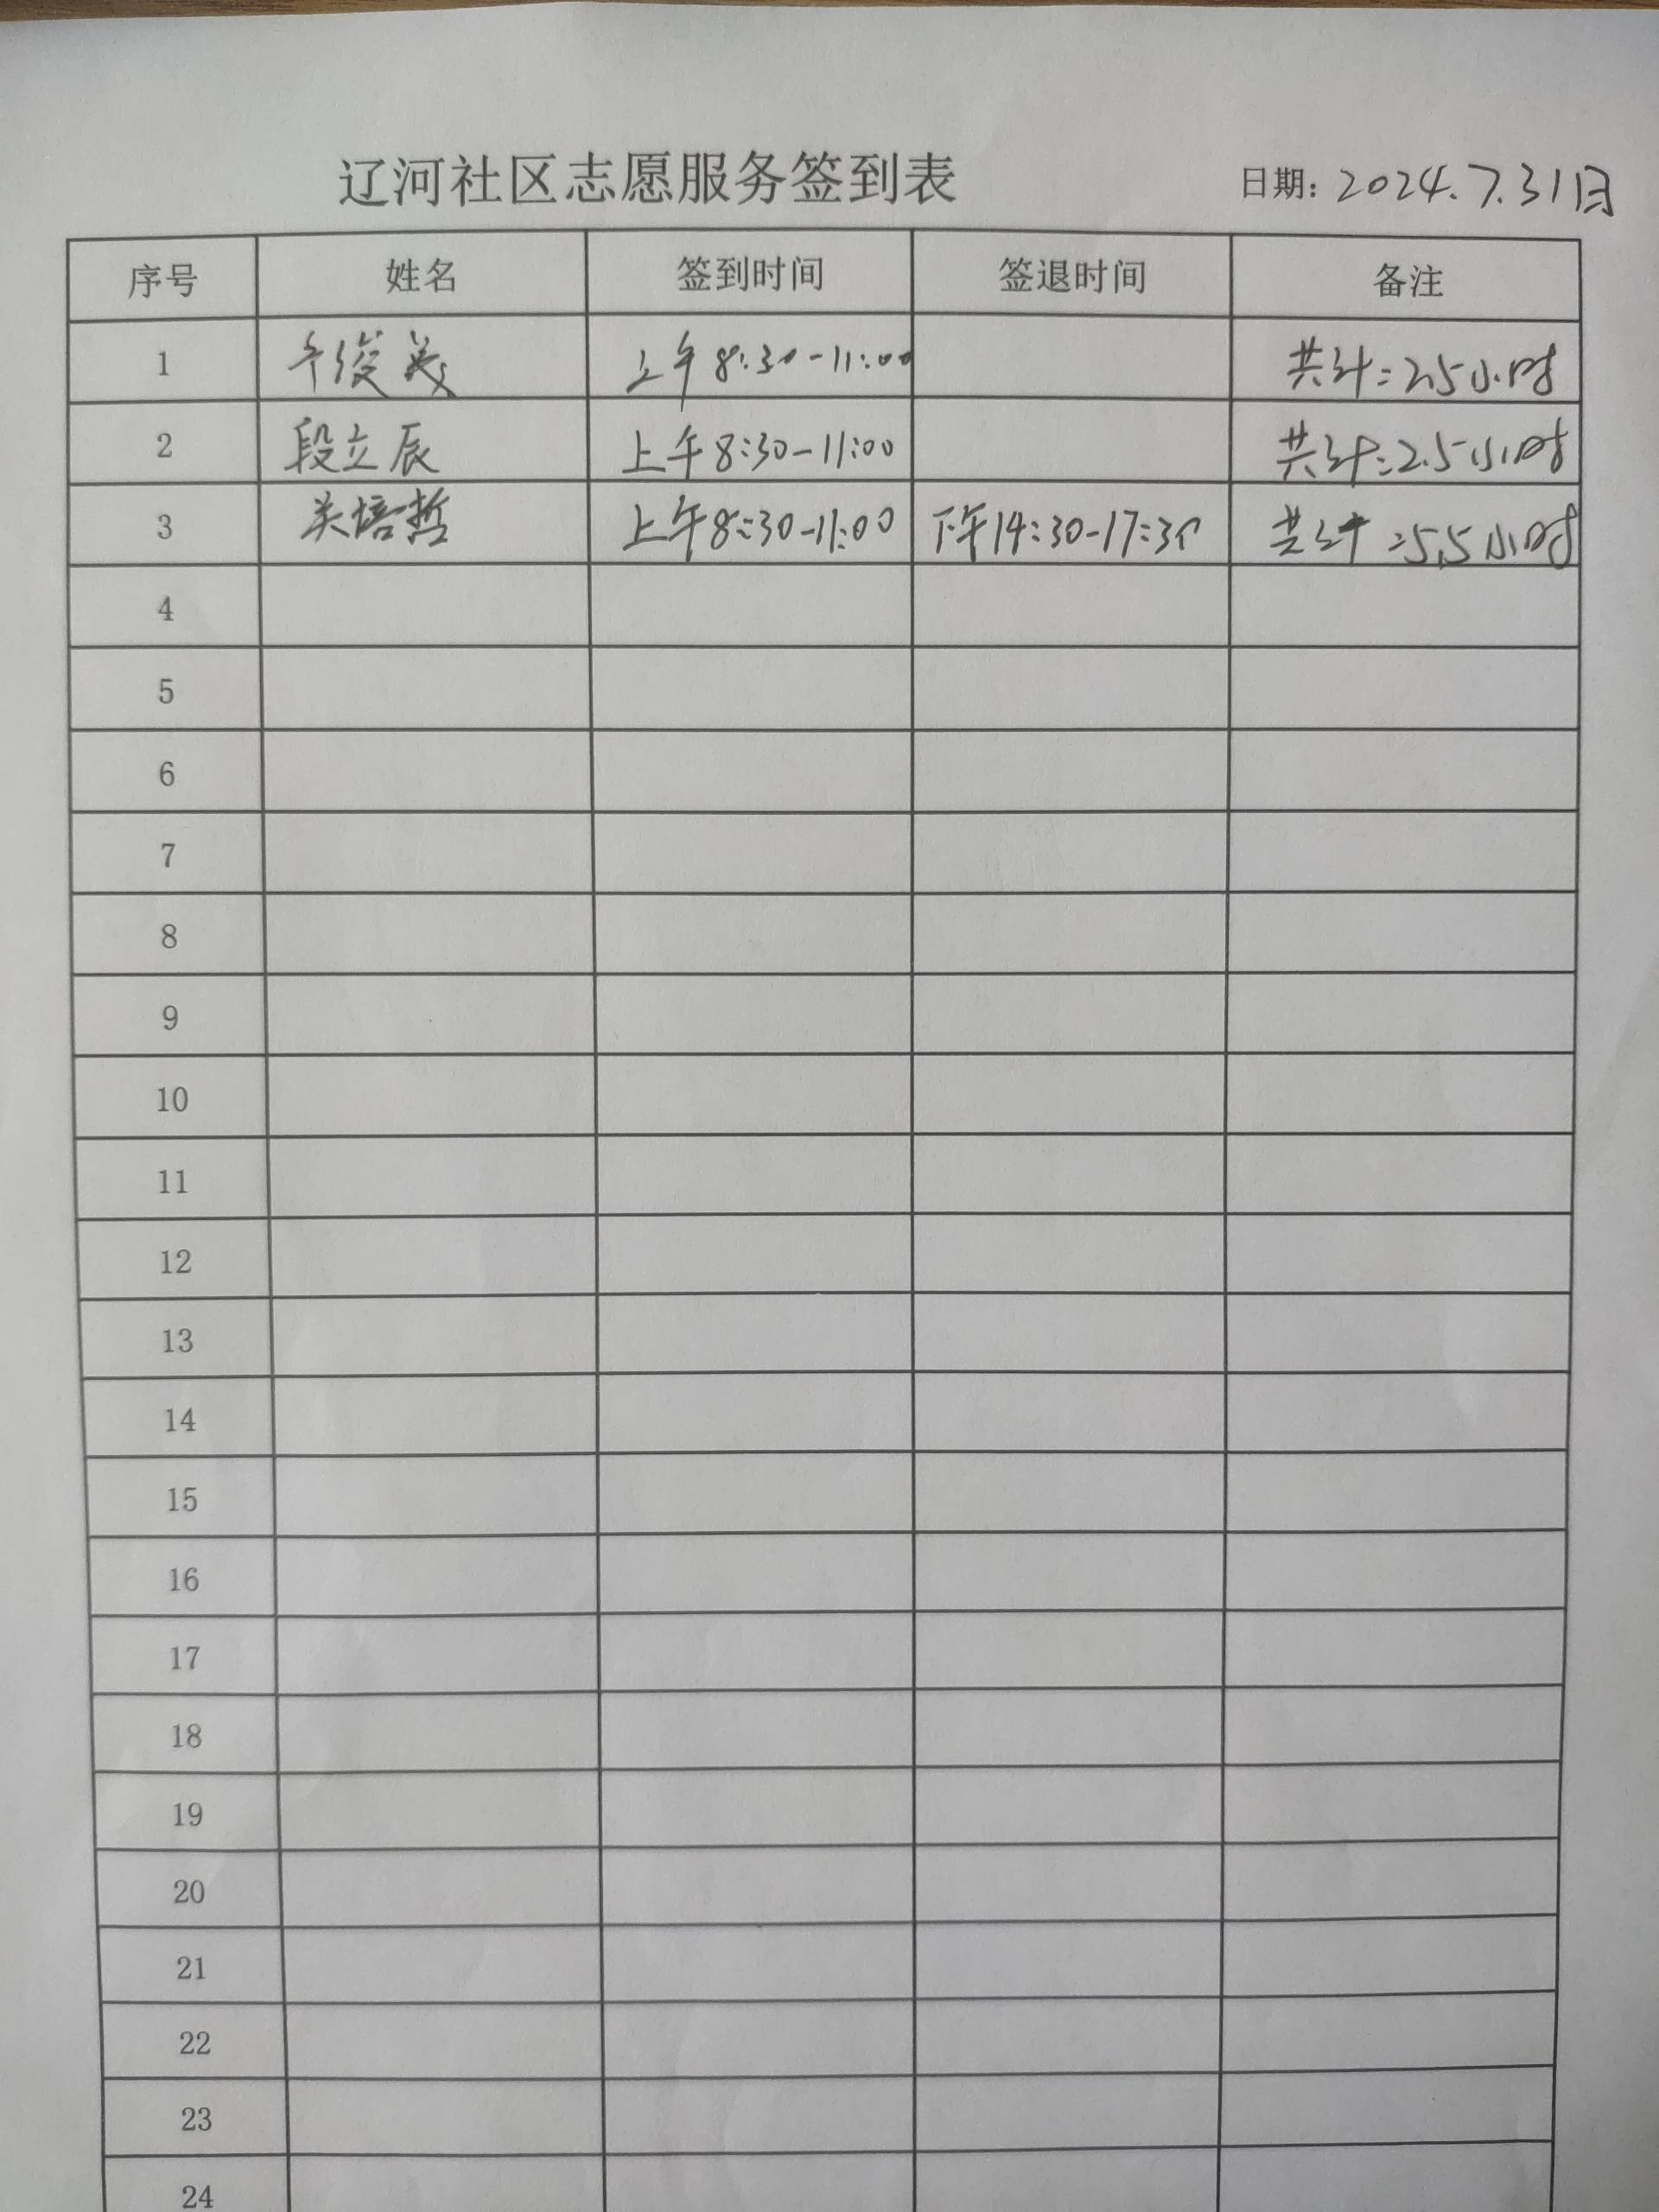 辽河社区志愿服务签到表 日期: 2024.7.31日
序号 姓名 签到时间 签退时间 备注
1 上午 8:30-11:00 共计:2.5小时
2 段立辰 上午 8:30-11:00 共计:2.5小时
3 关培哲 上午8:30-11:00 下午14:30-17:30 共计:5.5小时
4
5
6
7
8
9
10
11
12
13
14
15
16
17
18
19
20
21
22
23
24